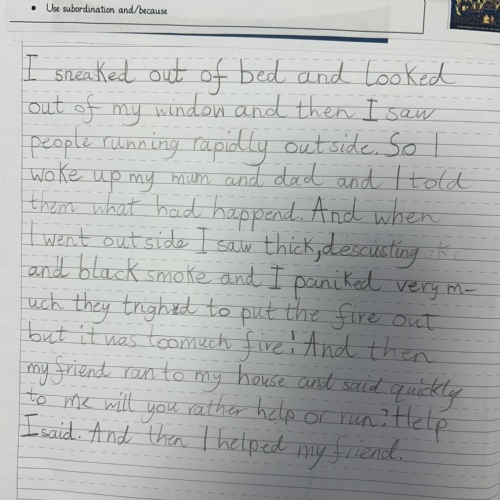 Use subordination and/because
I sneaked out of bed and looked
out of my window and then I saw
people running rapidly outside. So I
woke up my mum and dad and I told
them what had happend. And when
I went outside I saw thick, descusting
and black smoke and I paniked very m-
uch they trighed to put the fire out
but it was toomuch fire! And then
my friend ran to my house and said quickly
to me will you rather help or run? Help
I said. And then I helped my friend.